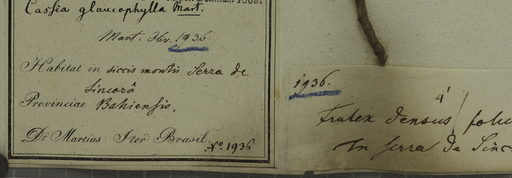 Cassia glaucophylla Mart.
Mart. Hbr. 1936
Habitat in siccis montis Serra de
Sincorá
Provinciae Bahiensis.
Dr Martius Iter Brasil. No 1936
1936.
Frutex densus
In Serra de Sinc